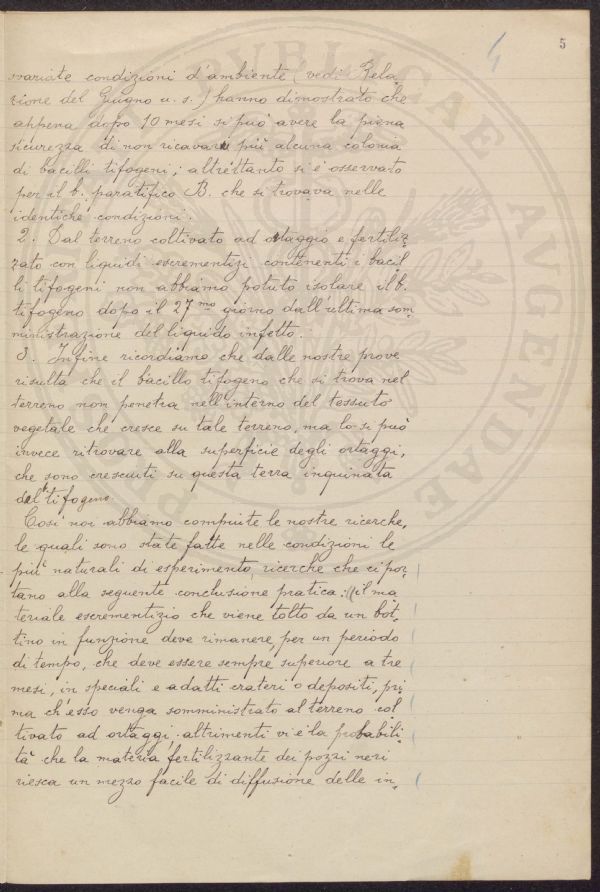 5
svariate condizioni d'ambiente (vedi Rela-
zione del Giugno u. s.) hanno dimostrato che
appena dopo 10 mesi si può avere la piena
sicurezza di non ricavare più alcuna colonia
di bacilli tifogeni; altrettanto si è osservato
per il b. paratifico B. che si trovava nelle
identiche condizioni.
2. Dal terreno coltivato ad ortaggio e fertiliz-
zato con liquidi escrementizi contenenti i bacil-
li tifogeni non abbiamo potuto isolare il b.
tifogeno dopo il 27mo giorno dall'ultima som-
ministrazione del liquido infetto.
3. Infine ricordiamo che dalle nostre prove
risulta che il bacillo tifogeno che si trova nel
terreno non penetra nell'interno del tessuto
vegetale che cresce su tale terreno, ma lo si può
invece ritrovare alla superficie degli ortaggi,
che sono cresciuti su questa terra inquinata
del b. tifogeno
Così noi abbiamo compiute le nostre ricerche,
le quali sono state fatte nelle condizioni le
più naturali di esperimento, ricerche che ci por-
tano alla seguente conclusione pratica: (il ma-
teriale escrementizio che viene tolto da un bot-
tino in funzione deve rimanere, per un periodo
di tempo, che deve essere sempre superiore a tre
mesi, in speciali e adatti crateri o depositi, pri-
ma ch'esso venga somministrato al terreno col-
tivato ad ortaggi, altrimenti vi è la probabili-
tà che la materia fertilizzante dei pozzi neri
riesca un mezzo facile di diffusione delle in-
PVBLICAE AVGENDAE